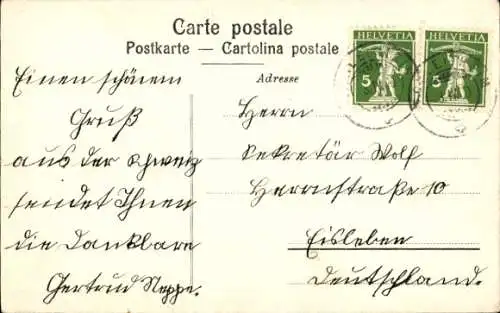 Carte postale
Postkarte — Cartolina postale
Adresse
HELVETIA
5
HELVETIA
5
Einen schönem
Gruß
aus der schweiz
sendet Ihnen
die Dankbare
Gertrud Neppe.
Herrn
Sekretär Wolf
Herrnstraße 10
Eisleben
Deutschland.